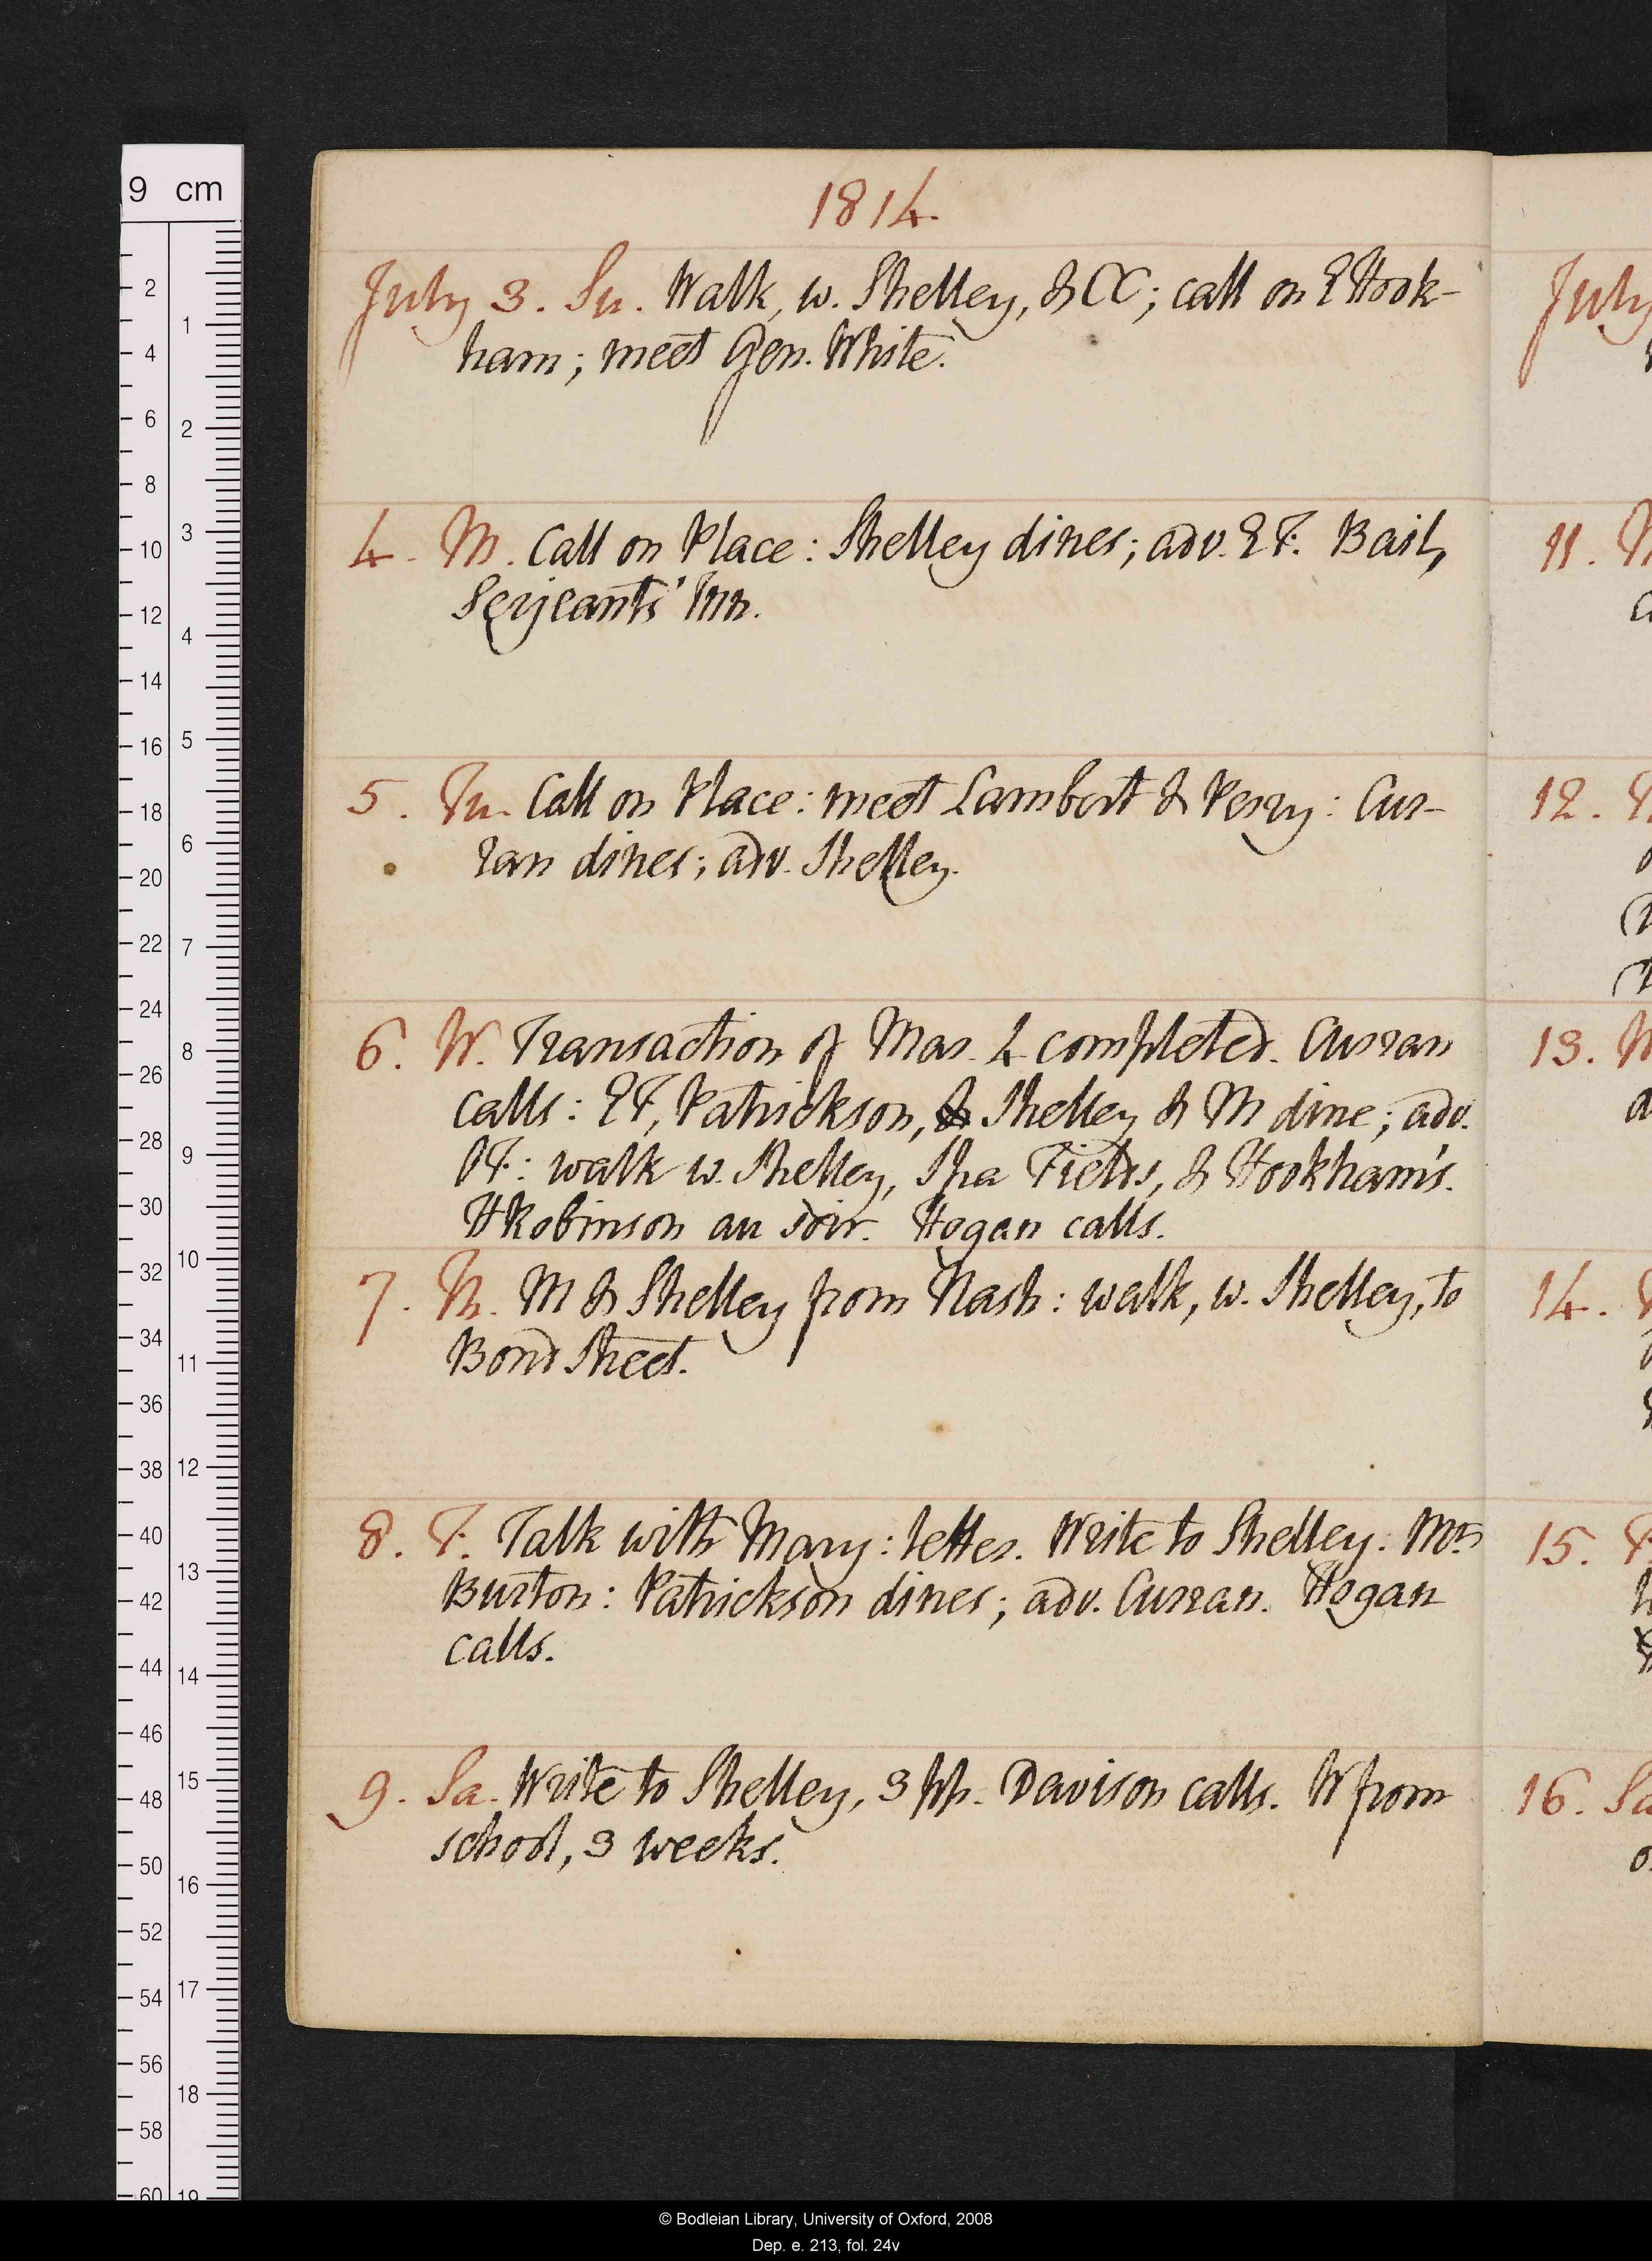 9 cm
1814.
July 3. Su. Walk, w. Shelley, & CC; call on E Hook-
ham; meet Gen. White.
4. M. Call on Place: Shelley dines; adv. E F. Bail,
Serjeants' Inn.
5. Tu. Call on Place: meet Lambert & Perry: Cur-
ran dines; adv. Shelley.
6. W. Transaction of Mar. 4 completed. Curran
calls: E F, Patrickson, & Shelley & M dine; adv.
PF: walk w. Shelley, Spa Fields, & Hookham's.
H Robinson au soir. Hogan calls.
7. Th. M & Shelley from Nash: walk, w. Shelley, to
Bond Street.
8. F. Talk with Mary: letter. Write to Shelley: Mrs
Burton: Patrickson dines; adv. Curran. Hogan
calls.
9. Sa. Write to Shelley, 3 pp. Davison calls. W from
school, 3 weeks.
July
11.
12.
13.
14.
15.
16. Sa
© Bodleian Library, University of Oxford, 2008
Dep. e. 213, fol. 24v